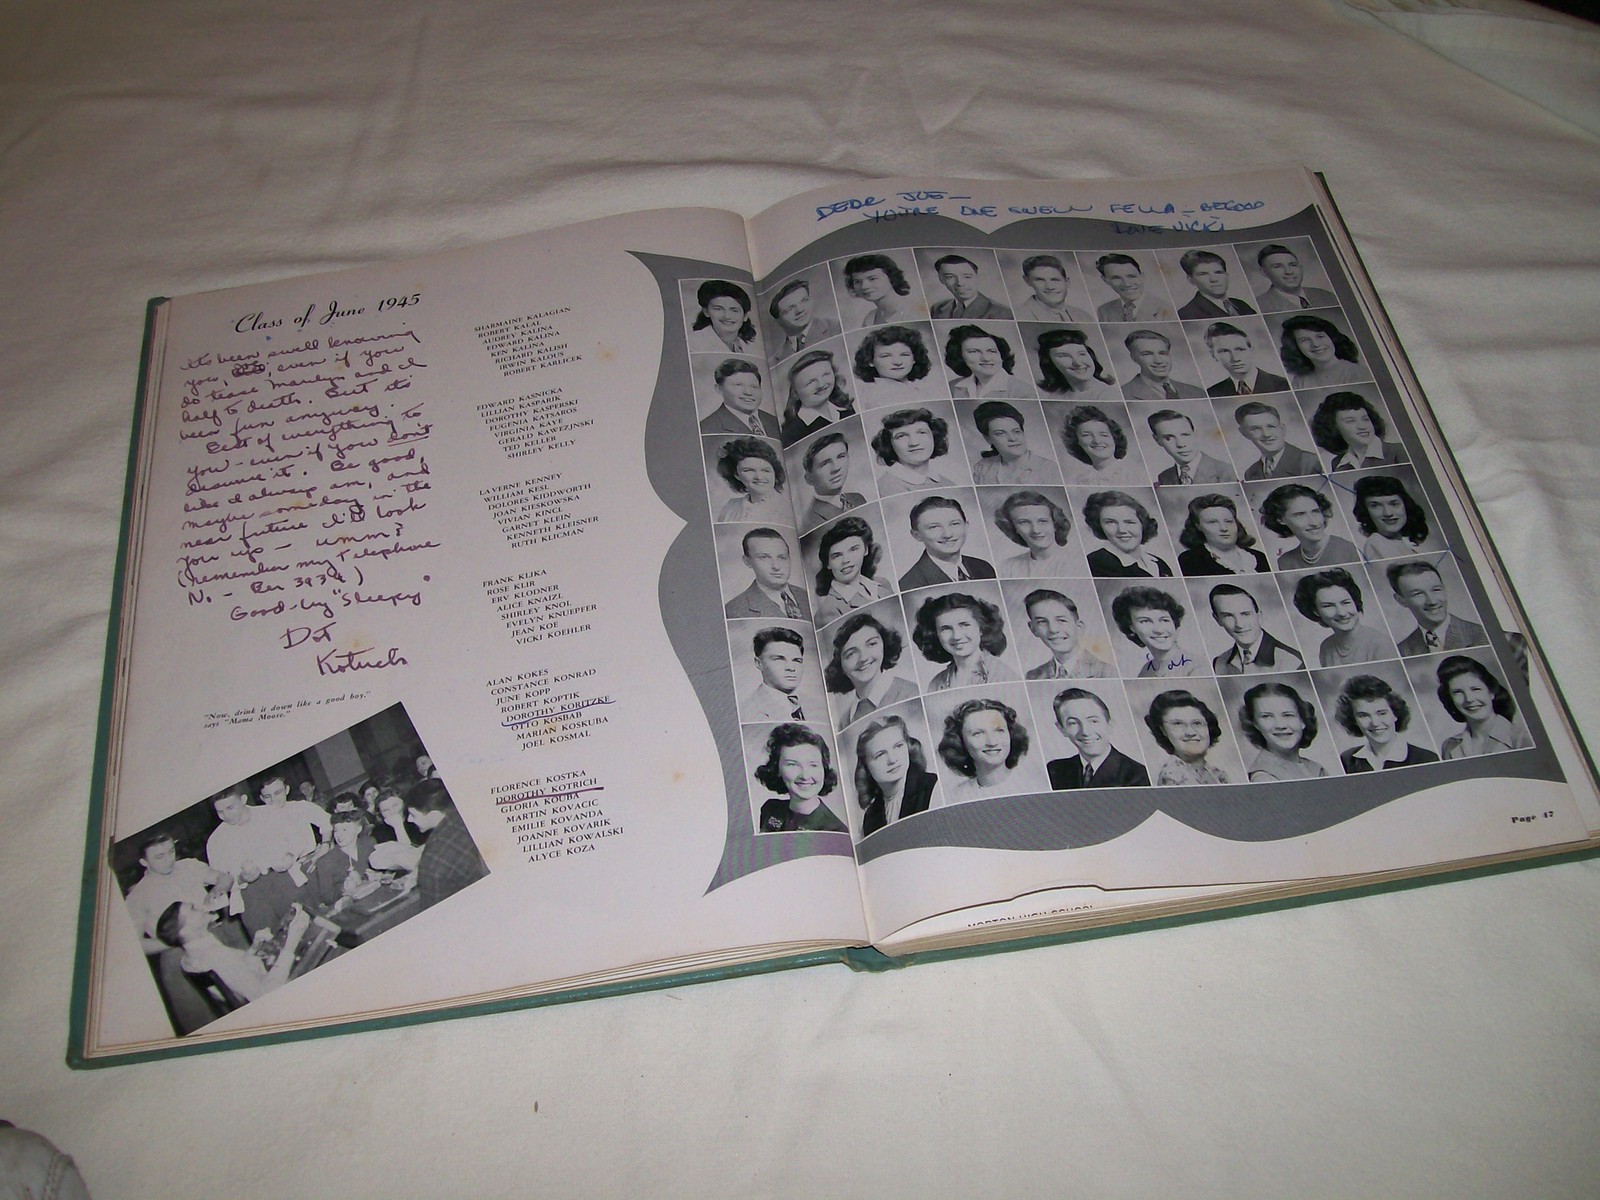 Class of June 1945
It's been swell knowing
you, even if you
do tease Marilyn and I
half to death. But it's
been fun anyway.
Best of everything to
you - even if you don't
deserve it. Be good,
like I always am, and
maybe someday in the
near future I'll look
you up - umm?
(remember my telephone
No. - Ber 3934)
Good-by "Sleepy"
Dot
Kotrich
"Now, drink it down like a good boy,"
says "Mama Moose."
SHARMAINE KALAGIAN
ROBERT KALAL
AUDREY KALINA
EDWARD KALINA
KEN KALINA
RICHARD KALISH
IRWIN KALOUS
ROBERT KARLICEK
EDWARD KASNICKA
LILLIAN KASPARIK
DOROTHY KASPERSKI
EUGENIA KATSAROS
VIRGINIA KAYE
GERALD KAWEZJNSKI
TED KELLER
SHIRLEY KELLY
LAVERNE KENNEY
WILLIAM KESL
DOLORES KIDDWORTH
JOAN KIESKOWSKA
VIVIAN KINCL
GARNET KLEIN
KENNETH KLEISNER
RUTH KLICMAN
FRANK KLIKA
ROSE KLIR
ERV KLODNER
ALICE KNAIZL
SHIRLEY KNOL
EVELYN KNUEPFER
JEAN KOE
VICKI KOEHLER
ALAN KOKES
CONSTANCE KONRAD
JUNE KOPP
ROBERT KOPTIK
DOROTHY KORITZKE
OTTO KOSBAB
MARIAN KOSKUBA
JOEL KOSMAL
FLORENCE KOSTKA
DOROTHY KOTRICH
GLORIA KOUBA
MARTIN KOVACIC
EMILIE KOVANDA
JOANNE KOVARIK
LILLIAN KOWALSKI
ALYCE KOZA
DEAR JOE -
YOU'RE ONE SWELL FELLA - BE GOOD
LOVE VICKI
Dot
Page 47
MORTON HIGH SCHOOL